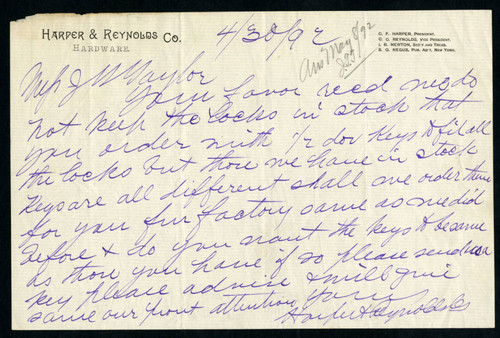 HARPER & REYNOLDS CO.
HARDWARE.
C. F. HARPER, PRESIDENT.
C. G. REYNOLDS, VICE PRESIDENT.
J. R. NEWTON, SECTY AND TREAS.
S. G. NEGUS, PUR. AGT, NEW YORK.
4/30/92
Ans May 8/92
Mess J W Naylor
Your favor recd we do
not keep the locks in stock that
you order with 1/2 doz Keys to fit all
the locks but those we have in stock
Keys are all different shall we order these
for you fur factory same as we did
before & do you want the keys to be same
as those you have if so please send us a
key please advise & will give
same our promt attention
Yours
Harper & Reynolds Co